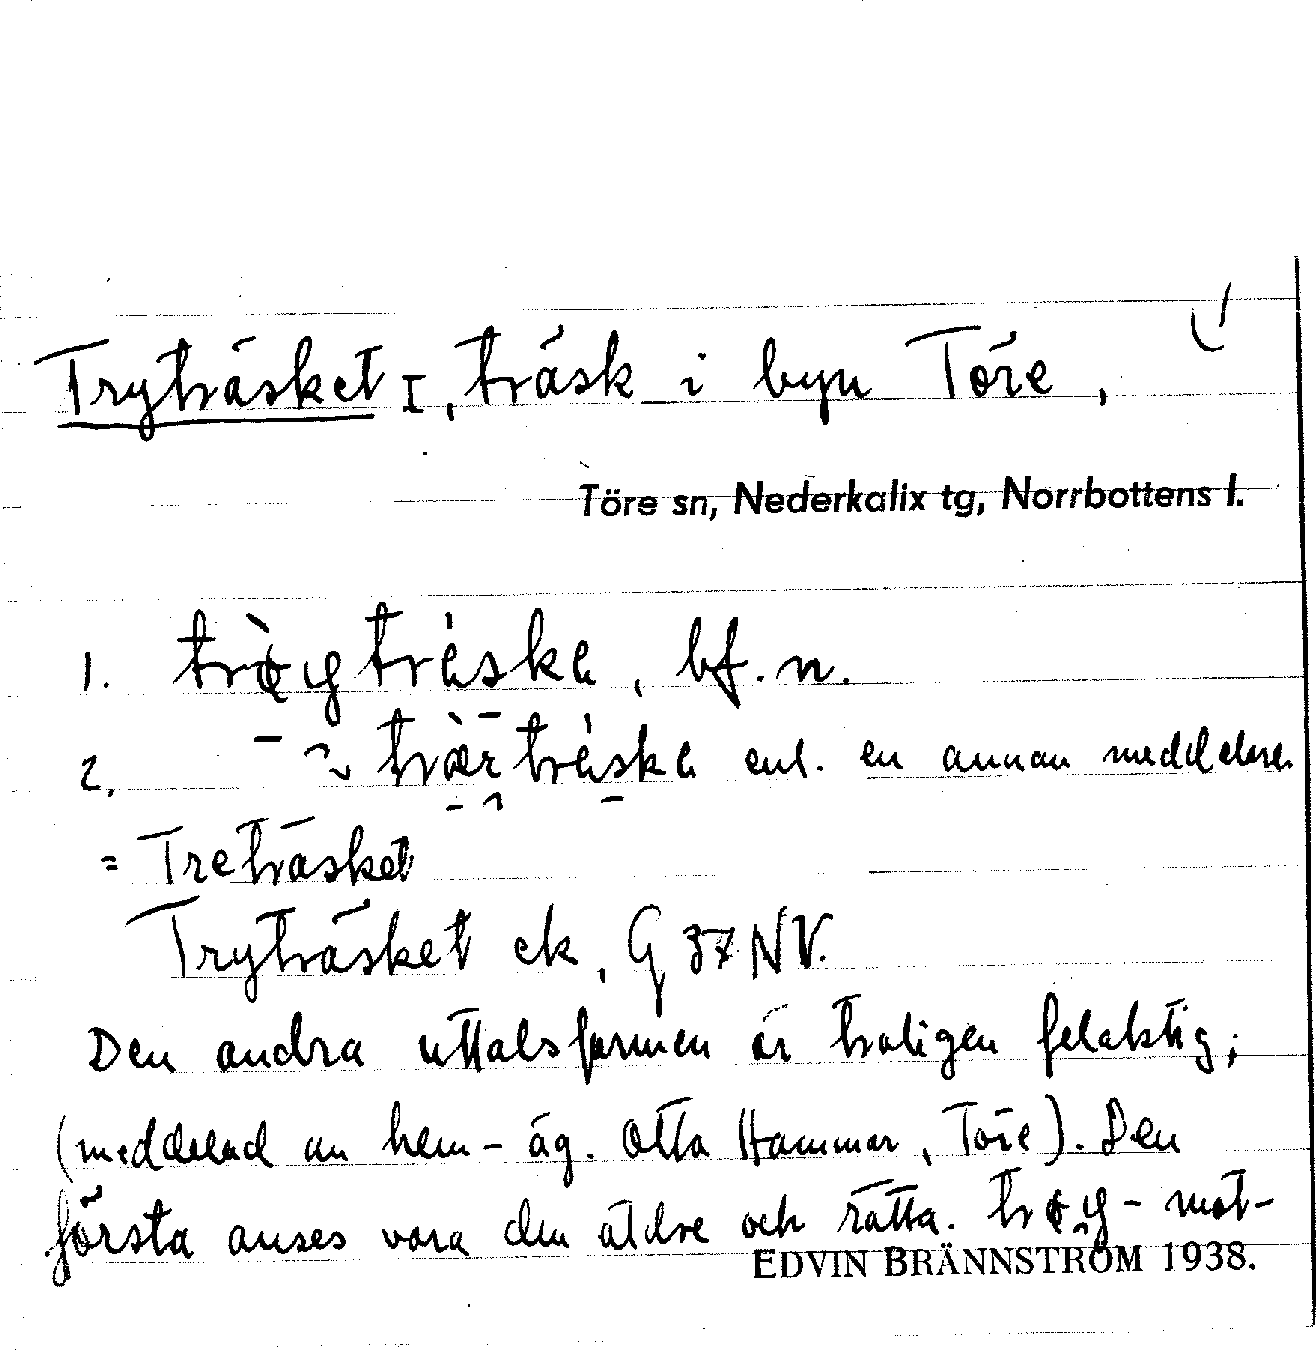 Tryträsket I, träsk i byn Töre,
Töre sn, Nederkalix tg, Norrbottens l.
1. bf. n.
2. enl. en annan meddelare
= Treträsket
Tryträsket ek, G 37 NV.
Den andra uttalsformen är troligen felaktig;
(meddelad av hem-äg. Otto Hammar, Töre). Den
första anses vara den äldre och rätta. mot-
EDVIN BRÄNNSTRÖM 1938.